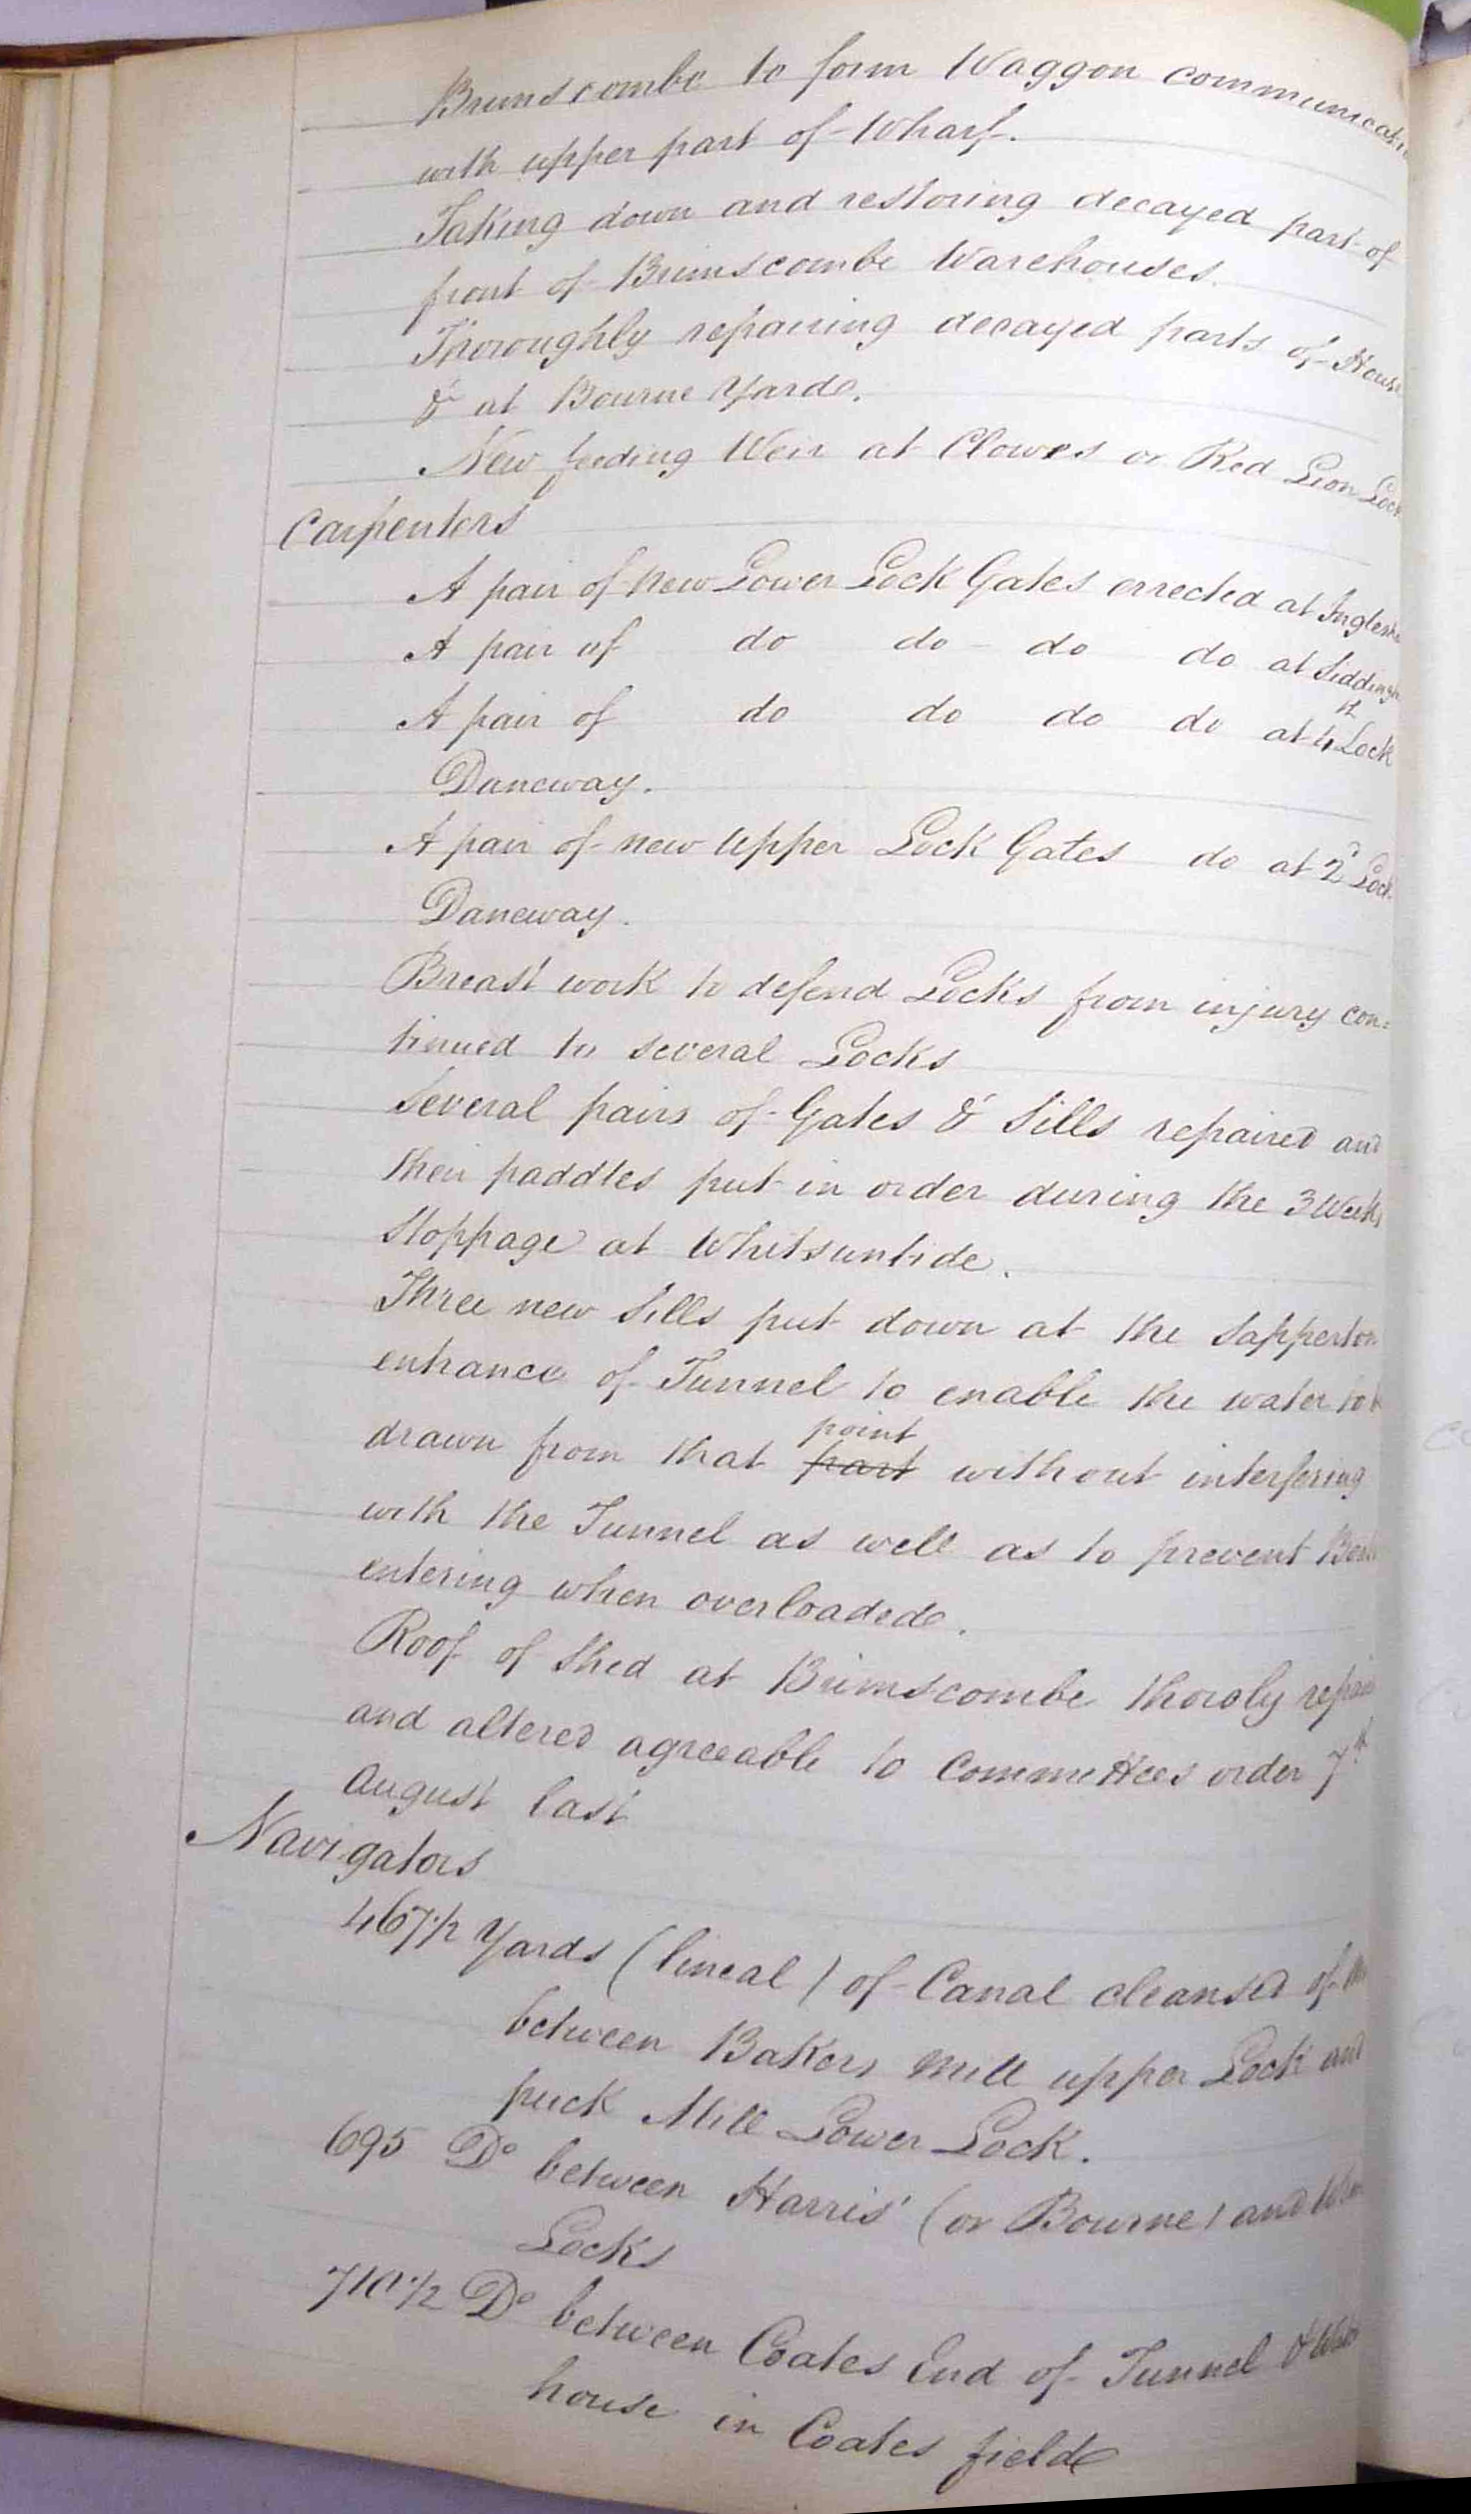 Brimscombe to form Waggon communicatio
with upper part of Wharf.
Taking down and restoring decayed part of
front of Brimscombe Warehouses.
Thoroughly repairing decayed parts of House
&c at Bourne Yard.
New feeding Weir at Clowes or Red Lion Lock
Carpenters
A pair of new Lower Lock Gates errected at Inglesha
A pair of do do do do at Siddingto
A pair of do do do do at 4th Lock
Daneway.
A pair of new upper Lock Gates do at 2d Lock
Daneway.
Breast work to defend Locks from injury con=
tinued to several Locks
Several pairs of Gates & Sills repaired and
their paddles put in order during the 3 Weeks
Stoppage at Whitsuntide.
Three new Sills put down at the Sapperton
entrance of Tunnel to enable the water to b
drawn from that part point without interfering
with the Tunnel as well as to prevent Boats
entering when overloaded.
Roof of Shed at Brimscombe thoroly repair
and altered agreeable to Committees order 7th
August last
Navigators
467 1/2 Yards (lineal) of Canal cleansed of
between Bakers Mill upper Lock and
puck Mill Lower Lock.
695 Do between Harris' (or Bourne) and
Locks
710 1/2 Do between Coates End of Tunnel &
house in Coates field